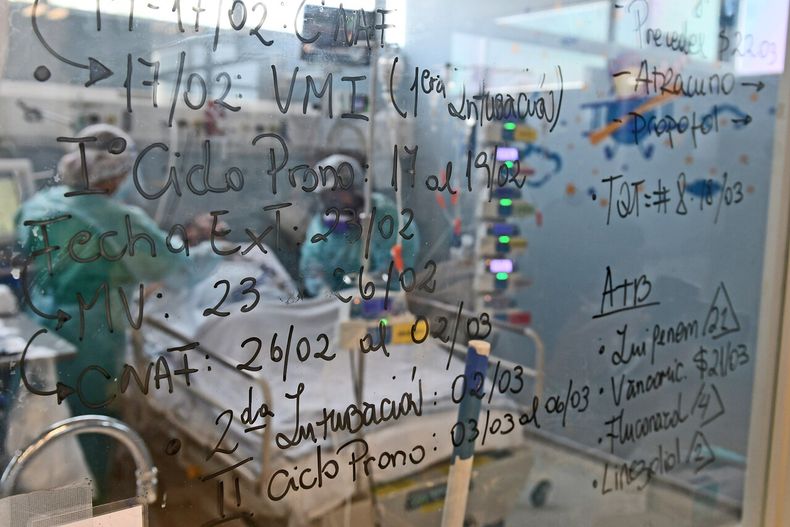 14-17/02: CNAF
17/02: VMI (1era Intubación)
I° Ciclo Prono: 17 al 19/02
Fecha Ext: 23/02
MV: 23 26/02
CNAF: 26/02 al 02/03
2da Intubación: 02/03
II Ciclo Prono: 03/03 al 06/03
Precedex $22/03
- Atracurio →
- Propofol →
• TQT = #8 18/03
ATB
• Imipenem /21
• Vancomic. $21/03
• Fluconazol /4
• Linezolid /2